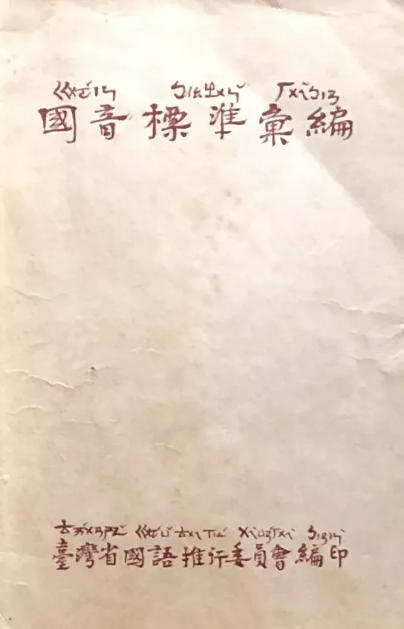 ㄍㄨㄛˊㄧㄣ ㄅㄧㄠㄓㄨㄣˇ ㄏㄨㄟˋㄅㄧㄢ
國音標準彙編
臺灣省國語推行委員會編印